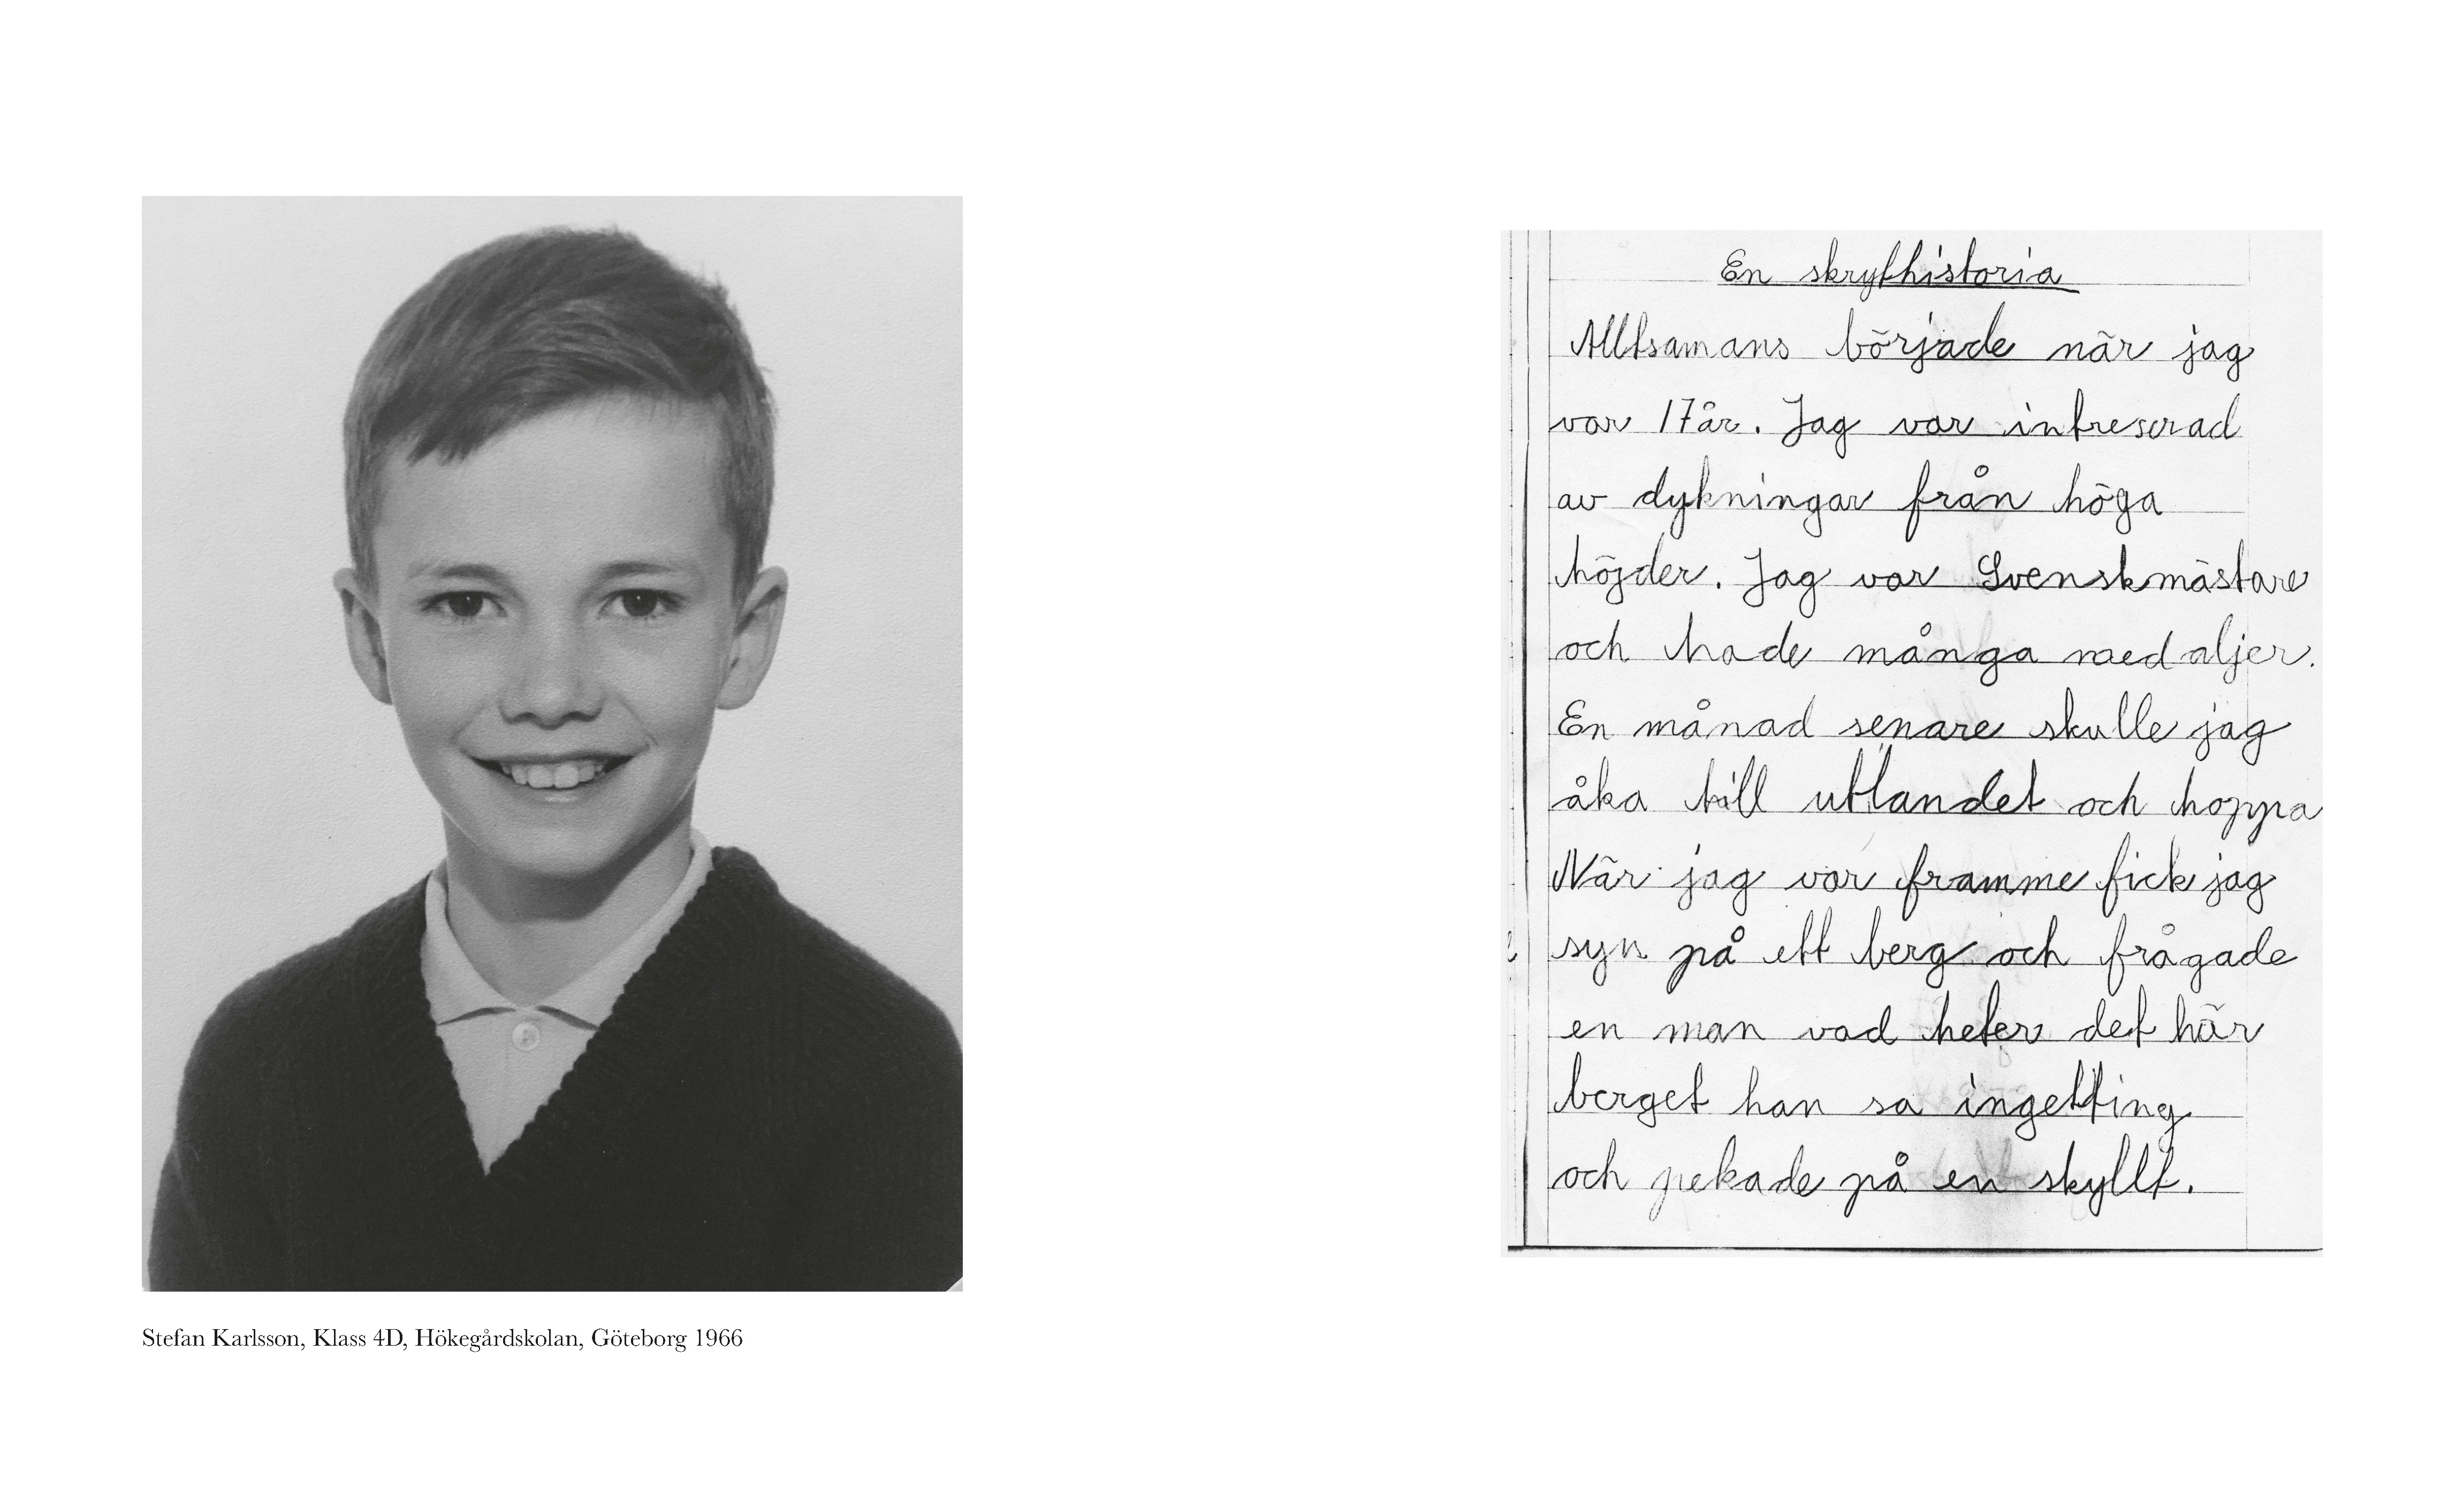 En skrythistoria
Alltsamans började när jag
var 17år. Jag var intreserad
av dykningar från höga
höjder. Jag var Svenskmästare
och hade många medaljer.
En månad senare skulle jag
åka till utlandet och hoppa
När jag var framme fick jag
syn på ett berg och frågade
en man vad heter det här
berget han sa ingetting
och pekade på en skyllt.
Stefan Karlsson, Klass 4D, Hökegårdskolan, Göteborg 1966